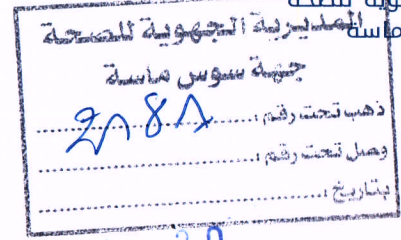 المديرية الجهوية للصحة
جهة سوس ماسة
ذهب تحت رقم :
وصل تحت رقم :
بتاريخ :